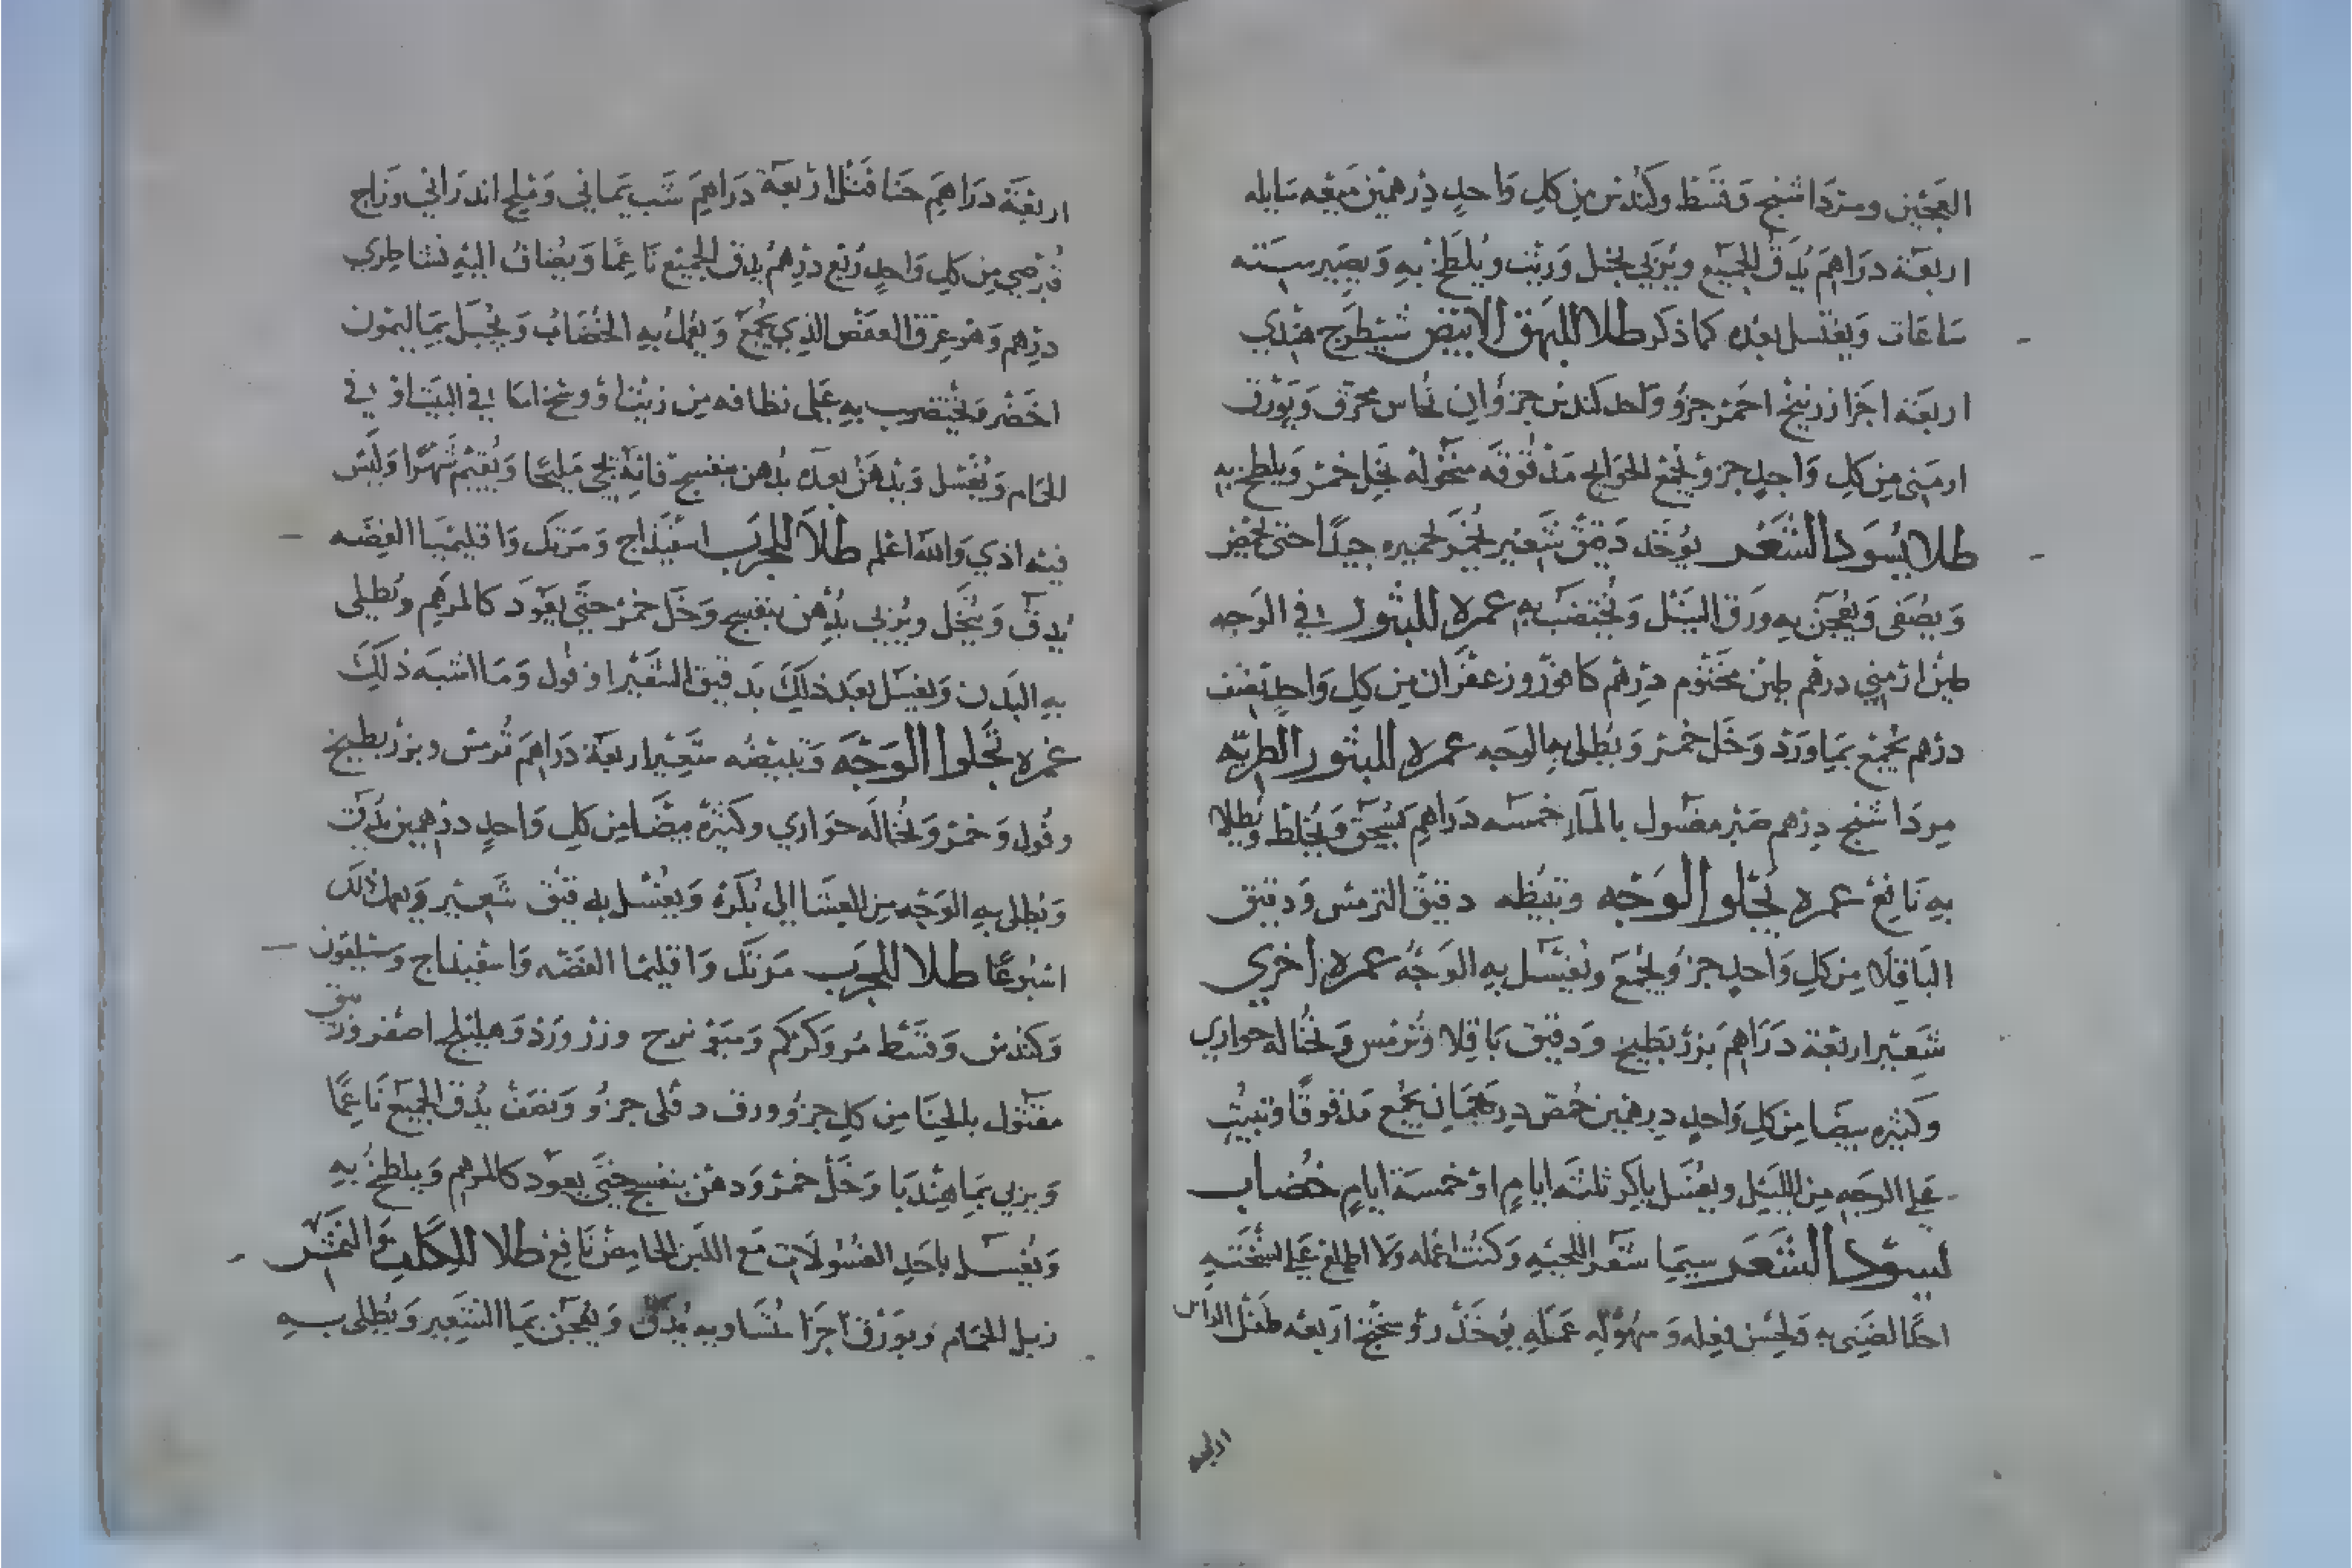 العجين ومرداشنج وقسط وكندس من كل واحد درهمين ميعه سايله
اربعة دراهم يدق الجميع ويربي بخل وزيت ويلطخ به ويصبر سته
ساعات ويغتسل بعده كما ذكر طلا للبهق الابيض شيطرج هندي
اربعة اجزا زرنيخ احمر جزو واحد كندس جزوان نحاس محرق وبورق
ارمني من كل واحد جزو تجمع الحوايج مدقوقه منخوله بخل خمر ويلطخ به
طلا يسود الشعر يوخذ دقيق شعير يخمر لخميره جيدا حتى يحمض
ويصفى ويعجن به ورق النيل ويختضب به عمره للبثور في الوجه
طين ارمني درهم طين مختوم درهم كافور وزعفران من كل واحد نصف
درهم يجمع بماورد وخل خمر ويطلى بها الوجه عمره للبثور الطريه
مرداشنج درهم صبر مغسول بالماء خمسه دراهم يسحق ويخلط ويطلا
به نافع عمره يجلو الوجه وتبيظه دقيق الترمس ودقيق
الباقلا من كل واحد جزو يجمع ويغسل به الوجه عمره اخرى
شعير اربعة دراهم بزر بطيخ ودقيق باقلا وترمس ونخاله حواري
وكثيره بيضا من كل واحد درهمين حمص درهمان يجمع مدقوقا وتبيت
على الوجه من الليل ويغسل باكر ثلثه ايام او خمسة ايام خضاب
يسود الشعر سيما شعر اللحيه وكنت اعمله ولا اطلع على نسخته
احدا لضني به ولحسن فعله وسهوله عمله يوخذ روسختج اربعه طفل الراس
اربعة
اربعة دراهم حنا فتل اربعة دراهم شب يماني وملح اندراني وزاج
قبرصي من كل واحد ربع درهم يدق الجميع ناعما ويضاف اليه نشاطري
درهم وهو عرق العفص الذي يجمع ويعمل به الخضاب ويجبل بما ليمون
اخضر ويختضب به على نظافه من زيت او وسخ اما في البيت او في
الحمام ويغسل ويدهن بعده بدهن بنفسج فانه يجي مليحا ويقيم شهرا وليس
فيه اذي والله اعلم طلا للجرب اسفيداج ومرتك واقليميا الفضه
يدق وينخل ويربي بدهن بنفسج وخل خمر حتى يعود كالمرهم ويطلى
به البدن ويغسل بعد ذلك بدقيق الشعير او فول وما اشبه ذلك
غمره تجلوا الوجه وتبيضه شعير اربعة دراهم ترمس وبزر بطيخ
وفول وخمر ونخاله حواري وكثيره بيضا من كل واحد درهمين يدق
ويطلى به الوجه من العشا الى بكره ويغسل به قيق شعير ويعمل ذلك
اسبوعا طلا للجرب مرتك واقليميا الفضه واسفيداج وسيلقون
وكندس وقسط مر وكركم وميويزج وزر ورد وهليلج اصفر وزيبق
مقتول بالحنا من كل جزو ورق دفلى جزو ونصف يدق الجميع ناعما
ويربي بما هندبا وخل خمر ودهن بنفسج حتى يعود كالمرهم ويلطخ به
ويغسل باحد الغسولات مع اللبن الحامض نافع طلا للكلف والنمش
زبل الحمام وبورق اجزا متساويه يدق ويعجن بما الشعير ويطلى به